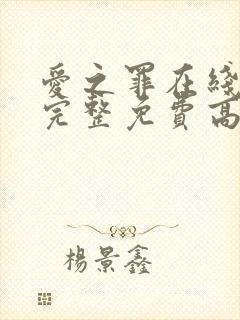 愛之罪在綫
完整免費高
楊景鑫